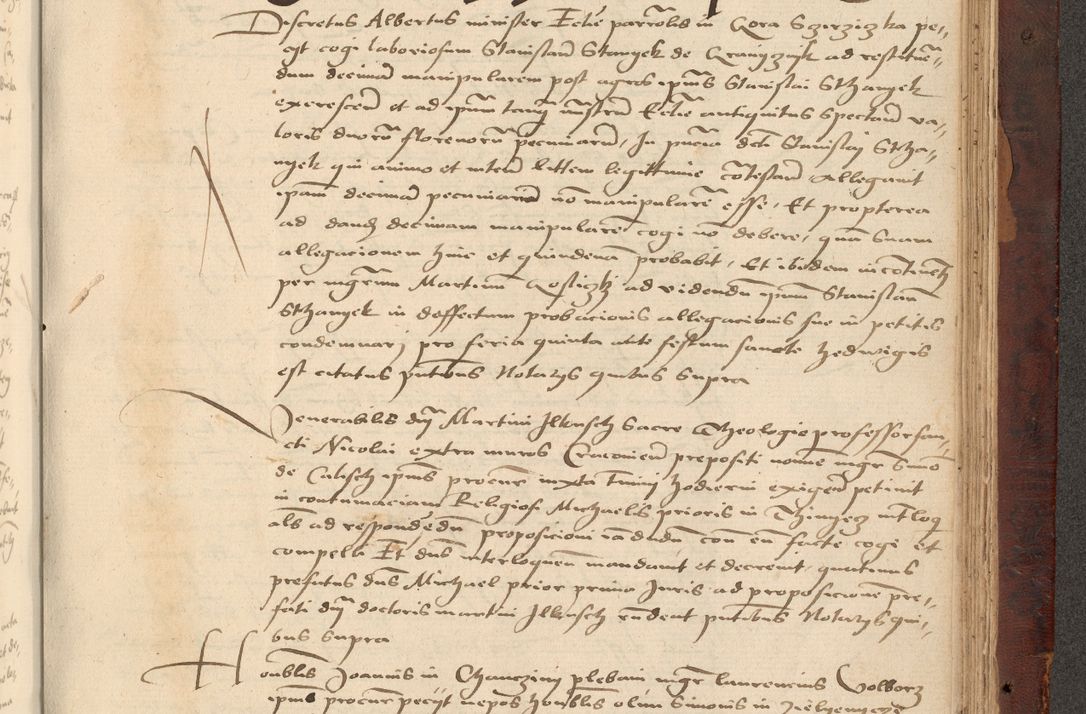 Discretus Albertus minister Ecclie parrolis in Gora Sczirziczka pe-
cyt cogi laboriosum Stanislaum Stanyek de ad restituen-
dum decimam manipularem post agros ipsius Stanislai Sthanyek
excrescen et ad ipsum tanq ministrum Ecclie antiquitus spectan va-
loris duorum florenorum pecuniarum, In pncia dicti Stanislai Stha-
nyek qui animo et inten littem legittime contestan Allegavit
ipsam decimam pecuniariam non manipularem esse, Et propterea
ad dandam decimam manipularem cogi non debere, quam suam
allegacionem hinc et quindenam probabit, Et ibidem incontinenti
per mgrum Martinum ad videndum ipsum Stanislaum
Sthanyek in deffectum probacionis allegacionis sue in petitis
condemnari pro feria quinta ante festum sancte Hedwigis
est citatus pntibus Notarijs quibus supra
Venerabilis dni Martini Ilkusch Sacre Theologie professor san-
cti Nicolai extra muros Cracovien prepositi nomine mgr Simon
de Calisch ipsius procur iuxta termini hodierni exigen petivit
in contumaciam Religiosi Michaelis prioris in Thinyecz
als ad respondendum proposicioni iam dudum con eum facte cogi et
compelli Et dns interloquen mandavit et decrevit, quatinus
prefatus dns Michael prior primo Iuris ad proposicionem pre-
fati dni doctoris martini Ilkusch rndeat pntibus Notarijs qui-
bus supra
Honblis Joannis in Chanczini plebani mgr laurencius Volborz
ipius procur pecijt nepos honblis olim Simonis in